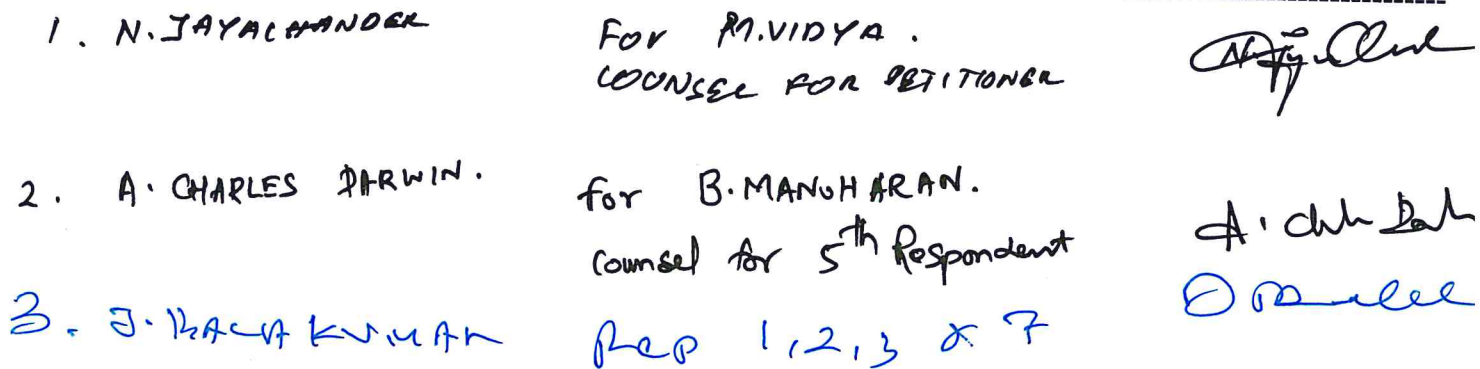 1. N. JAYACHANDER For M.VIDYA.
COUNSEL FOR PETITIONER
2. A. CHARLES DARWIN. for B. MANOHARAN.
Counsel for 5th Respondent
3. J. Rep 1,2,3 & 7